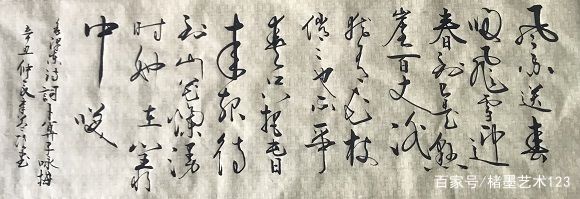 风雨送春
归飞雪迎
春到已是悬
崖百丈冰
犹有花枝
俏〻也不争
春只把春
来报待
到山花烂漫
时她在丛
中笑
毛泽东诗词卜算子咏梅
辛丑仲夏
百家号/楮墨艺术123